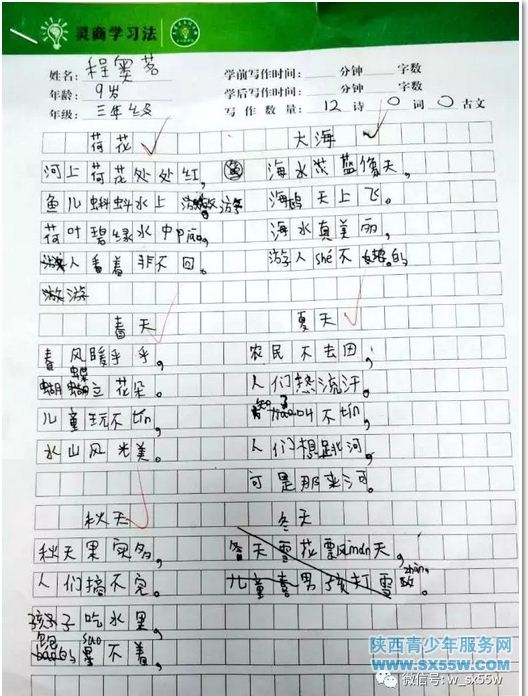 灵商学习法
姓名：程奕茗
学前写作时间：分钟 字数
年龄：9岁
学后写作时间：分钟 字数
年级：三年级
写作数量：12诗0词0古文
荷花
河上荷花处处红，
鱼儿蝌蚪水上游
荷叶碧绿水中piāo，
游人看着非不回。
游
大海
海水茫蓝像天，
海鸥天上飞。
海水真美丽，
游人shé不的。
春天
春风暖乎乎，
蝴蝶立花朵。
儿童玩不tín，
水山风光美。
夏天
农民不去田，
人们热流汗。
知了叫不tín，
人们想是北河，
可是那来河。
秋天
秋天果实多，
人们摘不完。
孩子子吃水果，
饱的 不着。
冬天
天雪花飘mǎn天，
儿童喜男孩打雪 zhàn。
陕西青少年服务网
WWW.SX55W.COM
微信号: w_sx55w